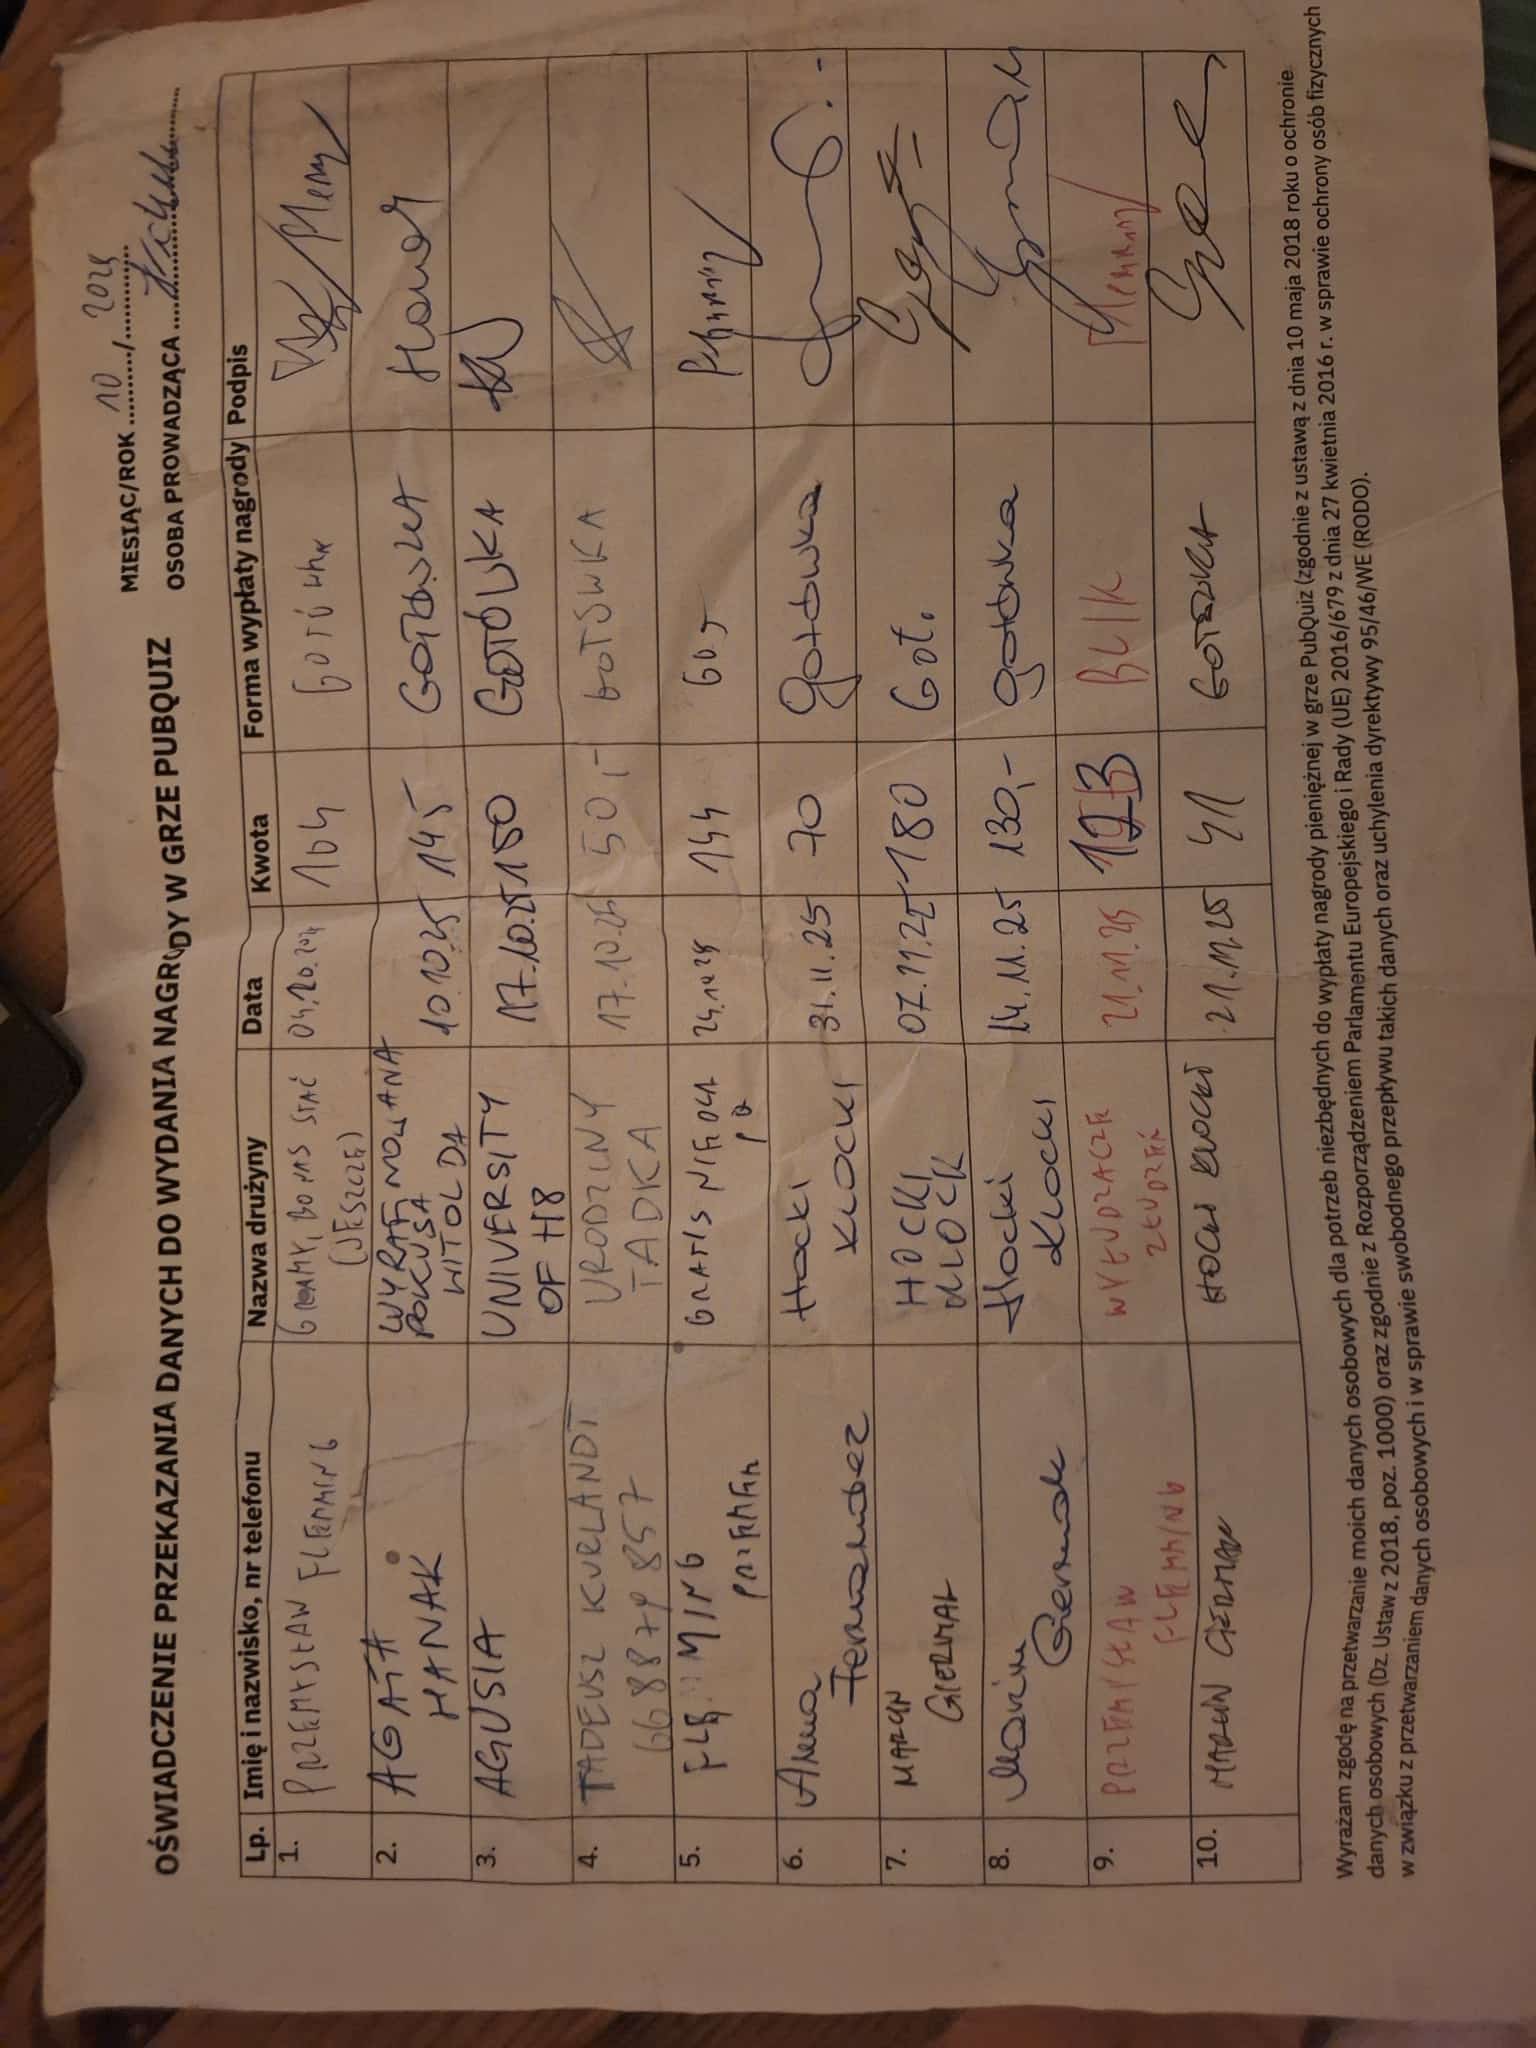 MIESIĄC/ROK 10 / 2025
OŚWIADCZENIE PRZEKAZANIA DANYCH DO WYDANIA NAGRODY W GRZE PUBQUIZ
OSOBA PROWADZĄCA
Lp. Imię i nazwisko, nr telefonu Nazwa drużyny Data Kwota Forma wypłaty nagrody Podpis
1. PRZEMYSŁAW FLEMMING STAĆ 104 GOTÓWKA
2. AGATA WITOLDA 10.10.25 145 GOTÓWKA
HANAK
3. AGUSIA UNIVERSITY 17.10.25 150 GOTÓWKA
OF H8
4. TADEUSZ KURLANDT URODZINY 17.10.25 50,- GOTÓWKA
668879857 TADKA
5. GRATIS 24.10.25 144
6. Anna Hocki 31.11.25 70 gotówka
Fernandez Klocki
7. MARCIN HOCKI 07.11.25 180 Got.
GIERMAK KLOCK
8. Marcin Hocki 14.11.25 130,- gotówka
Giermak Klocki
9. PRZEMYSŁAW 21.11.25 BLIK
FLEMMING
10. MARCIN HOCKI KLOCKI 21.11.25 41 GOTÓWKA
Wyrażam zgodę na przetwarzanie moich danych osobowych dla potrzeb niezbędnych do wypłaty nagrody pieniężnej w grze PubQuiz (zgodnie z ustawą z dnia 10 maja 2018 roku o ochronie
danych osobowych (Dz. Ustaw z 2018, poz. 1000) oraz zgodnie z Rozporządzeniem Parlamentu Europejskiego i Rady (UE) 2016/679 z dnia 27 kwietnia 2016 r. w sprawie ochrony osób fizycznych
w związku z przetwarzaniem danych osobowych i w sprawie swobodnego przepływu takich danych oraz uchylenia dyrektywy 95/46/WE (RODO).